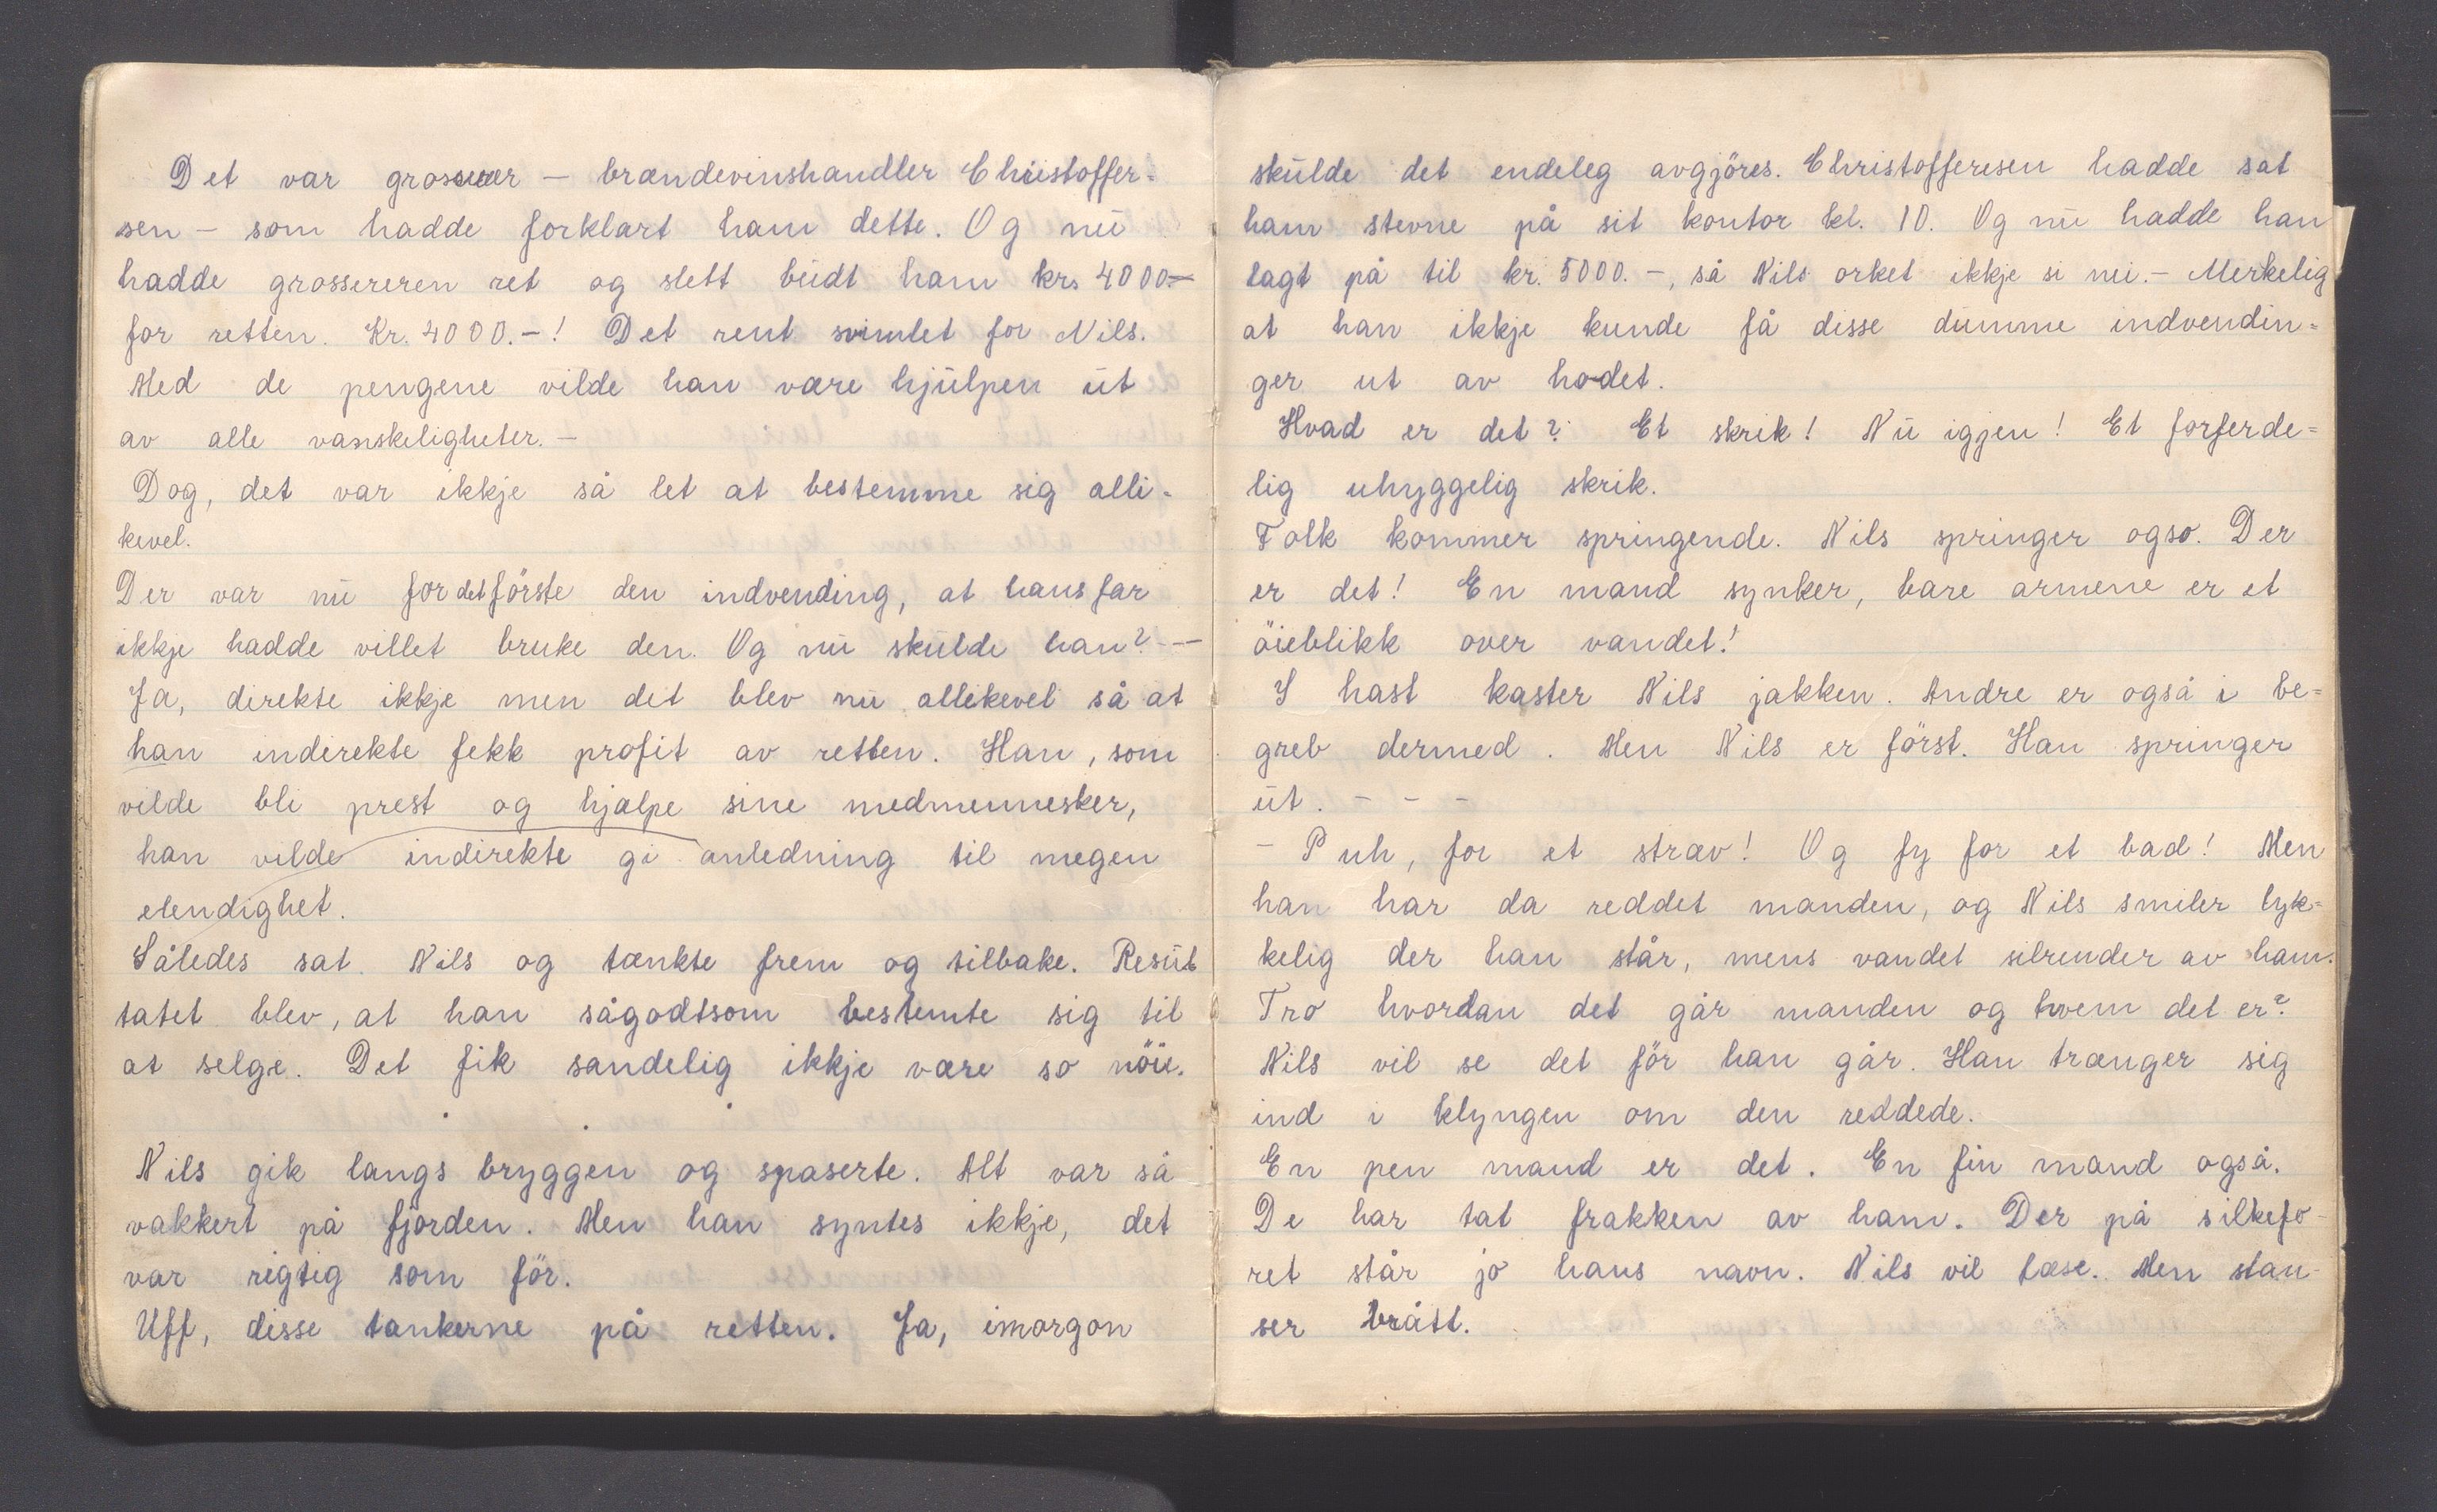 Det var grosserer - brændevinshandler Christoffer=
sen - som hadde forklart ham dette. Og nu
hadde grossereren ret og slett budt ham krs 4000.-
for retten. Kr. 4000.-! Det rent svimlet for Nils.
Med de pengene vilde han være hjulpen ut
av alle vanskeligheter. -
Dog, det var ikkje så let at bestemme sig alli=
kevel.
Der var nu for det förste den indvending, at hans far
ikkje hadde villet bruke den. Og nu skulde han? --
Ja, direkte ikkje men det blev nu allikevel så at
han indirekte fekk profit av retten. Han, som
vilde bli prest og hjælpe sine medmennesker,
han vilde indirekte gi anledning til megen
elendighet.
Således sat Nils og tænkte frem og tilbake. Resul
tatet blev, at han sågodtsom bestemte sig til
at selge. Det fik sandelig ikkje være so nöie.
Nils gik langs bryggen og spaserte. Alt var så
vakkert på fjorden. Men han syntes ikkje, det
var rigtig som för.
Uff, disse tankerne på retten. Ja, imorgon
skulde det endeleg avgjöres. Christofferesen hadde sat
ham stevne på sit kontor kl. 10. Og nu hadde han
lagt på til kr. 5000.-, så Nils orket ikkje si nei. - Merkelig
at han ikkje kunde få disse dumme indvendin=
ger ut av hodet.
Hvad er det? Et skrik! Nu igjen! Et forferde=
lig uhyggelig skrik.
Folk kommer springende. Nils springer ogso. Der
er det! En mand synker, bare armene er et
öieblikk over vandet!
I hast kaster Nils jakken. Andre er også i be=
greb dermed. Men Nils er först. Han springer
ut. - - -
- Puh, for et stræv! Og fy for et bad! Men
han har da reddet manden, og Nils smiler lyk=
kelig der han står, mens vandet silrender av ham.
Tro hvordan det går manden og hvem det er?
Nils vil se det för han går. Han trænger sig
ind i klyngen om den reddede.
En pen mand er det. En fin mand også.
De har tat frakken av ham. Der på silkefo-
ret står jo hans navn. Nils vil læse. Men stan-
ser brått.